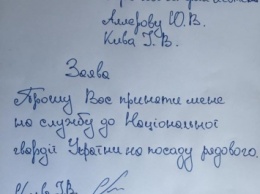 Алєрову Ю.В.
Кива І.В.
Заява
Прошу Вас прийняти мене
на службу до Національної
гвардії України на посаду рядового.
Кива І.В.